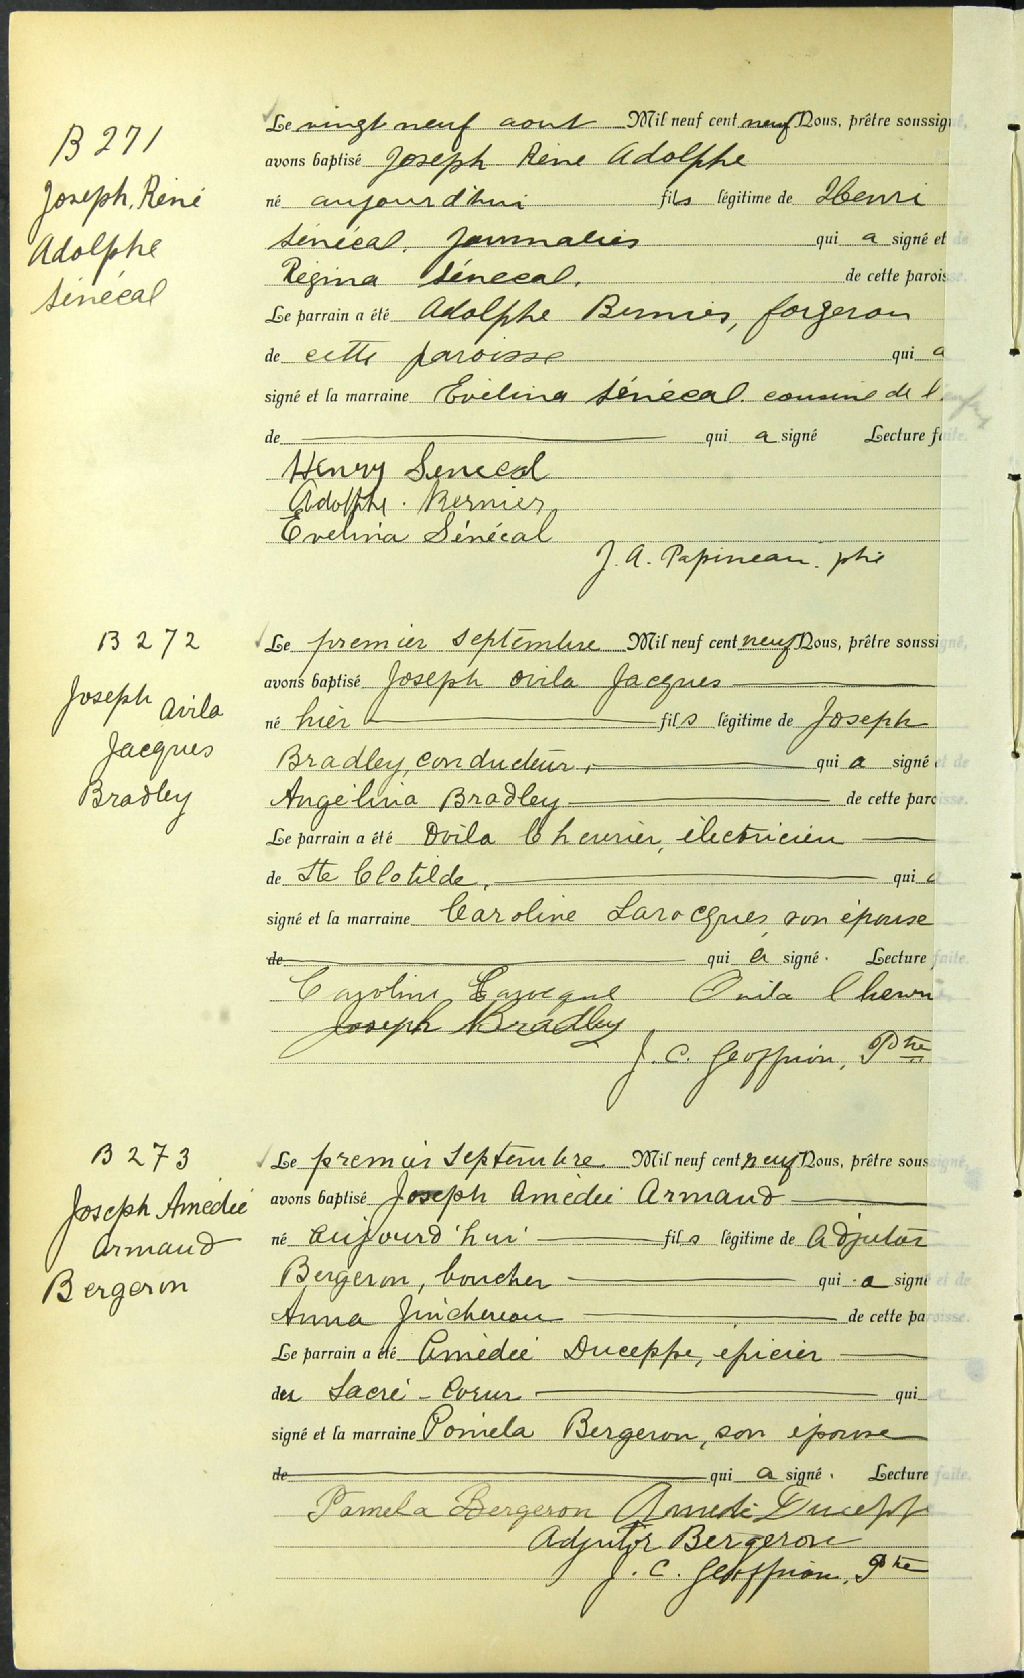 B 271
Joseph, Réné
Adolphe
Sénécal
Le vingt neuf aout Mil neuf cent neuf Nous, prêtre soussigné,
avons baptisé Joseph Réné Adolphe
né aujourd'hui fils légitime de Henri
Sénécal, journalier qui a signé et de
Régina Sénécal. de cette paroisse.
Le parrain a été Adolphe Bernier, forgeron
de cette paroisse qui a
signé et la marraine Evelina Sénécal cousine de l'enfant
de qui a signé Lecture faite.
Henry Senecal
Adolphe. Bernier
Evelina Sénécal
J. A. Papineau. ptre
B 272
Joseph Avila
Jacques
Bradley
Le premier septembre Mil neuf cent neuf Nous, prêtre soussigné,
avons baptisé Joseph Ovila Jacques
né hier fils légitime de Joseph
Bradley, conducteur, qui a signé et de
Angélina Bradley de cette paroisse.
Le parrain a été Ovila Chevrier, électricien
de Ste Clotilde, qui a
signé et la marraine Caroline Larocques, son épouse
de qui a signé. Lecture faite.
Caroline Larocque Ovila Chevri
Joseph Bradley
J. C. Geoffrion, Ptre
B 273
Joseph Amédée
Armand
Bergeron
Le premier Septembre Mil neuf cent neuf Nous, prêtre soussigné,
avons baptisé Joseph Amédée Armand
né aujourd'hui fils légitime de Adjutor
Bergeron, boucher qui a signé et de
Anna Jinchereau de cette paroisse.
Le parrain a été Amédée Duceppe, épicier
du Sacré-Coeur qui a
signé et la marraine Paméla Bergeron, son épouse
de qui a signé. Lecture faite.
Pamela Bergeron Amédé Ducepp
Adjutor Bergeron
J. C. Geoffrion, Ptre